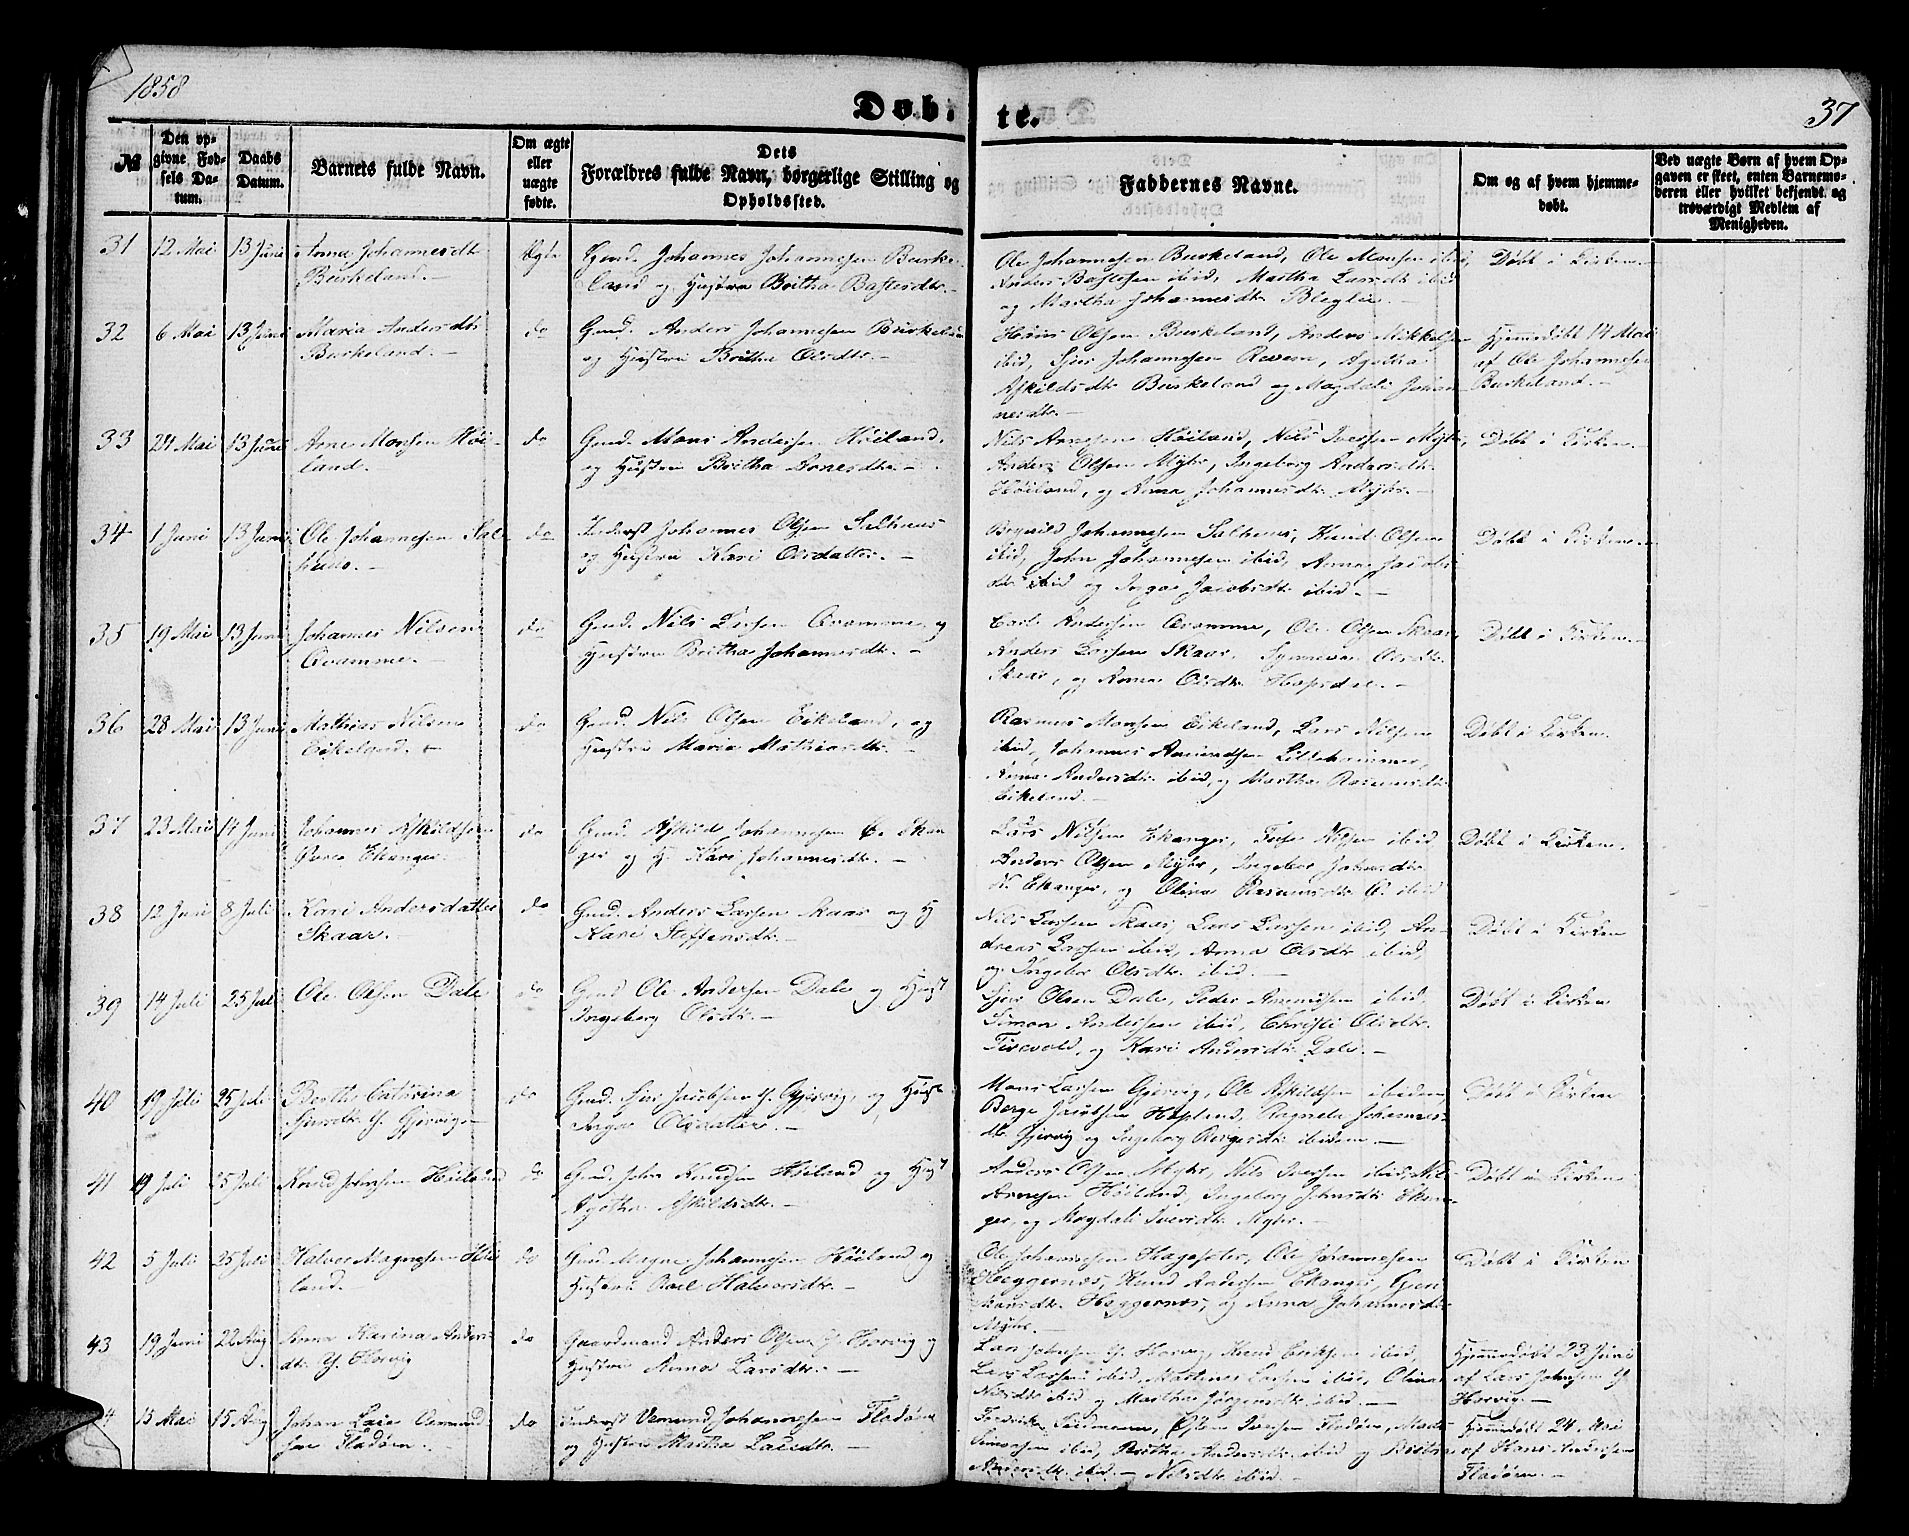 1858
Døbte.
37
№
Den op-
givne Fød-
sels Da-
tum.
Daabs
Datum.
Barnets fulde Navn.
Om ægte
eller
uægte
fødte.
Dets
Forældres fulde Navn, borgerlige Stilling og
Opholdssted.
Faddernes Navne.
Om og af hvem hjemme-
døbt.
Ved uægte Børn af hvem Op-
gaven er skeet, enten Barnemo-
deren eller hvilket bekjendt og
troværdigt Medlem af
Menigheden.
31 12 Mai 13 Juni Anna Johannesdtr
Burkeland.
Ægte
Gmd. Johannes Johannesen Burke-
land og Hustru Britha Bastesdtr.
Ole Johannesen Burkeland, Ole Monsen ibid,
Anders Bastesen ibid, Martha Larsdtr ibid
og Martha Johannesdtr
Døbt i Kirken
32 6 Mai 13 Juni Maria Andersdtr
Burkeland.
do
Gmd. Anders Johannesen Burkeland
og Hustru Britha Olsdtr.
Hans Olsen Burkeland, Anders Mikkelsen
ibid, Sjur Johannesen Agatha
Askildsdtr Burkeland og Magdali Johan-
nesdtr.
Hjemmedøbt 14 Mai
af Ole Johannesen
Burkeland.
33 24 Mai 13 Juni Arne Monsen Høi-
land.
do
Gmd. Mons Andersen Høiland,
og Hustru Britha Arnesdtr.
Nils Arnesen Høiland, Nils Iversen Myhr,
Anders Olsen Myhr, Ingeborg Andersdtr
Høiland, og Anna Johannesdtr Myhr.
Døbt i Kirken
34 1 Juni 13 Juni Ole Johannesen Sal-
huus.
do
Inderst Johannes Olsen Salhuus
og Hustru Kari Olsdatter.
Johannesen Salhuus, Knud Olsen
ibid, John Johannesen ibid, Anna Jacobs-
dtr ibid og Inga Jacobsdtr ibid.
Døbt i Kirken
35 19 Mai 13 Juni Johannes Nilsen
Qvamme.
do
Gmd. Nils Larsen Qvamme, og
Hustru Britha Johannesdtr.
Andersen Qvamme, Ole Olsen Skaar,
Anders Larsen Skaar, Synneva Olsdtr
Skaar, og Anna Olsdtr
Døbt i Kirken
36 28 Mai 13 Juni Mathias Nilsen
Eikeland.
do
Gmd. Nils Olsen Eikeland, og
Hustru Maria Mathiasdtr.
Rasmus Monsen Eikeland, Lars Nilsen
ibid, Johannes
Anna Andersdtr ibid, og Martha Rasmusdtr
Eikeland.
Døbt i Kirken
37 23 Mai 14 Juni Johannes Askildsen
Ekanger.
do
Gmd. Askild Johannesen Ekan-
ger og H. Kari Johannesdtr.
Lars Nilsen Ekanger, Nilsen ibid
Anders Olsen Myhr, Ingebor
N. Ekanger, og Olina Rasmusdtr ibid
Døbt i Kirken
38 12 Juni 8 Juli Kari Andersdatter
Skaar.
do
Gmd. Anders Larsen Skaar og H
Kari Steffensdtr.
Nils Larsen Skaar, Lars Larsen ibid, An-
dreas Larsen ibid, Anna Olsdtr ibid,
og Ingebor Olsdtr ibid.
Døbt i Kirken
39 14 Juli 25 Juli Ole Olsen Dale
do
Gmd Ole Andersen Dale og Hust
Ingeborg Olsdtr.
Sjur Olsen Dale, Peder ibid,
Simon Andersen ibid, Christi Olsdtr
og Kari Andersdtr Dale.
Døbt i Kirken
40 19 Juli 25 Juli Berthe Cathrina
Sjursdtr Y. Gjervig
do
Gmd. Sjur Jacobsen Y. Gjervig, og Hust.
Inga Olsdatter.
Mons Larsen Gjervig, Ole Askildsen ibidem
Berge Jacobsen Ragnela Johannes-
dtr Gjervig og Ingeborg Bergesdtr ibidem.
Døbt i Kirken
41 19 Juli 25 Juli Knud Johnsen Høiland
do
Gmd. John Knudsen Høiland og Hust
Agatha Askildsdtr.
Anders Olsen Myhr, Nils Iversen ibid, Nils
Arnesen Høiland, Ingeborg Johnsdtr Ekan-
ger, og Magdali Iversdtr Myhr.
Døbt i Kirken
42 5 Juli 25 Juli Halvor Magnesen Høi-
land.
do
Gmd Magne Johannesen Høiland og
Hustru Halvorsdtr.
Ole Johannesen Ole Johannesen
Heggernæs, Knud Andersen Ekanger,
Monsdtr Heggernæs, og Anna Johannesdtr
Myhr.
Døbt i Kirken
43 19 Juni 22 Aug Anna Karina Anders-
dtr Y. Horvig
do
Gaardmand Anders Olsen Y. Horvig og
Hustru Anna Larsdtr.
Lars Johnsen Y. Horvig, Knud Eriksen ibid,
Lars Larsen ibid, Larsen ibid, Olina
Nilsdtr ibid og Martha Jørgensdtr ibid.
Hjemmedøbt 23 Juni
af Lars Johnsen Y.
Horvig.
15 Mai 15 Aug Johan Vemund-
sen Fladøen.
do
Inderst Vemund Johannesen Fladøen
og Hustru Martha
Iversen Fladøen,
Simonsen ibid, Britha Andersdtr ibid og Britha
ibid. Nilsdtr ibid.
Hjemmedøbt 24 Mai
af Hans Andersen
Fladøen.